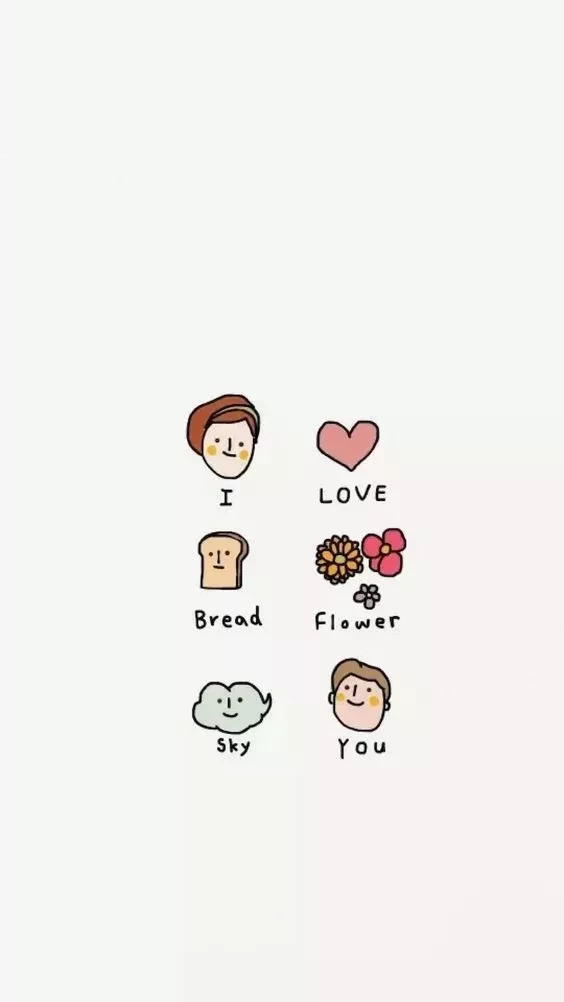 I LOVE
Bread Flower
Sky You